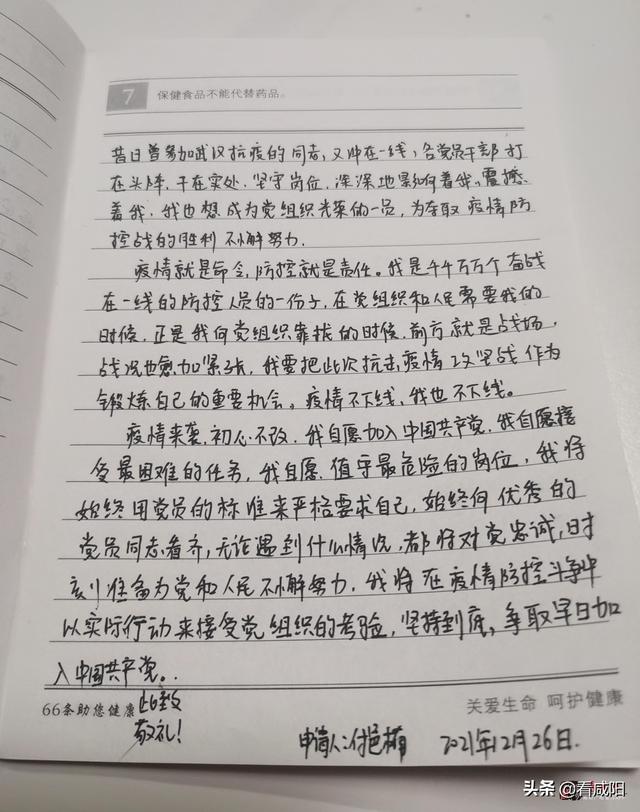 7 保健食品不能代替药品。
昔日曾参加武汉抗疫的同志,又冲在一线,各党员干部打
在头阵,干在实处,坚守岗位,深深地影响着我,震撼
着我,我也想成为党组织光荣的一员,为夺取疫情防
控战的胜利不懈努力.
疫情就是命令,防控就是责任。我是千千万万个奋战
在一线的防控人员的一份子,在党组织和人民需要我的
时候,正是我向党组织靠拢的时候,前方就是战场,
战况也愈加紧张,我要把此次抗击疫情攻坚战作为
锻炼自己的重要机会。疫情不下线,我也不下线。
疫情来袭,初心不改,我自愿加入中国共产党,我自愿接
受最困难的任务,我自愿值守最危险的岗位,我将
始终用党员的标准来严格要求自己,始终向优秀的
党员同志看齐,无论遇到什么情况,都将对党忠诚,时
刻准备为党和人民不懈努力,我将在疫情防控斗争中
以实际行动来接受党组织的考验,坚持到底,争取早日加
入中国共产党。
此致
66条助您健康 关爱生命 呵护健康
敬礼!
申请人: 2021年12月26日.
头条 @看咸阳